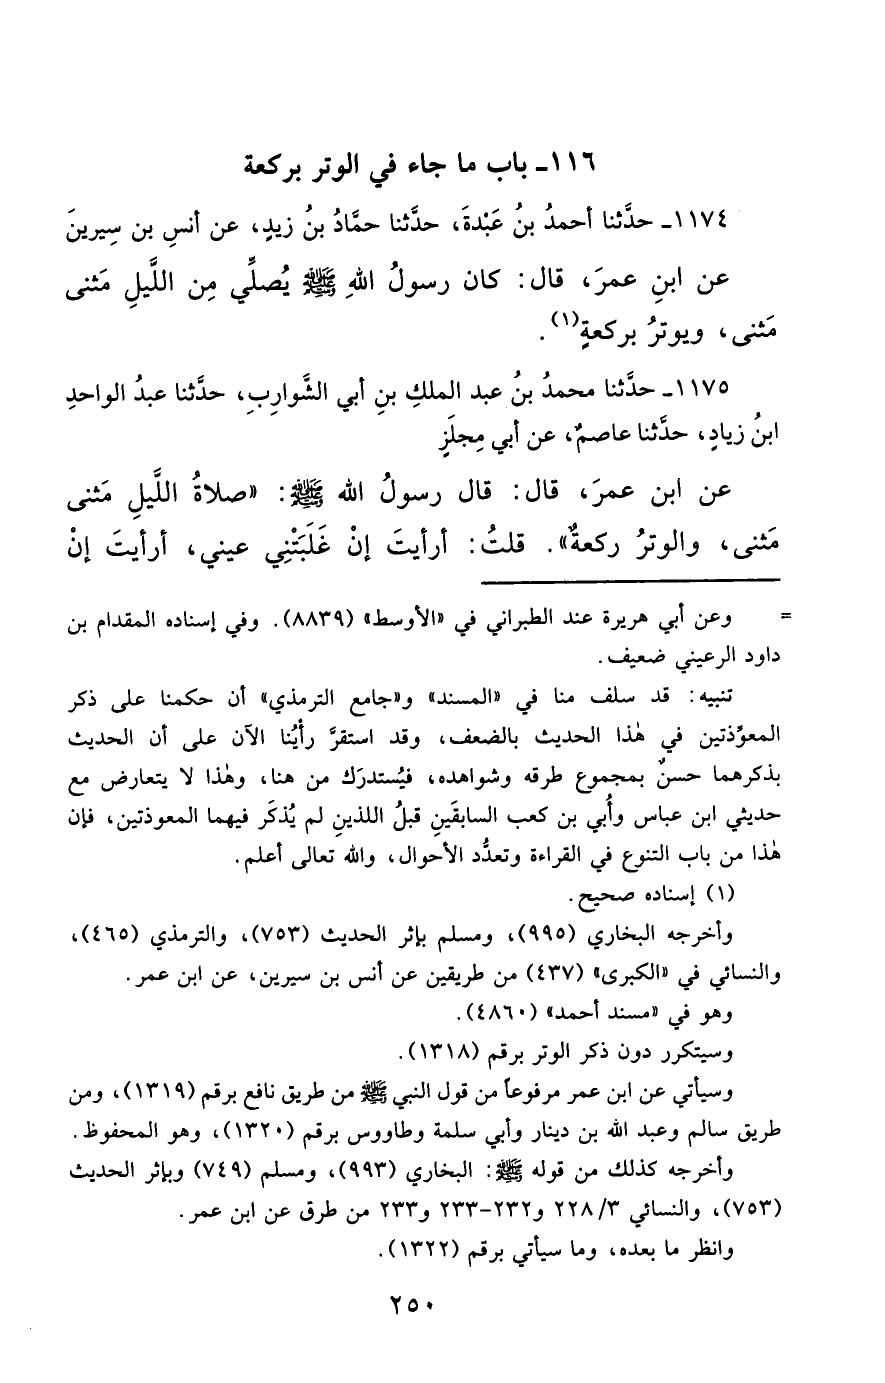 ١١٦ـ باب ما جاء في الوتر بركعة
١١٧٤ـ حدَّثنا أحمدُ بنُ عَبْدةَ، حدَّثنا حمَّادُ بنُ زيدٍ، عن أنسِ بن سِيرينَ
عن ابنِ عمرَ، قال: كان رسولُ اللهِ ﷺ يُصلِّي مِن اللَّيلِ مَثنى
مَثنى، ويوترُ بركعةٍ(١).
١١٧٥ـ حدَّثنا محمدُ بنُ عبد الملكِ بنِ أبي الشَّوارِبِ، حدَّثنا عبدُ الواحدِ
ابنُ زيادٍ، حدَّثنا عاصمٌ، عن أبي مِجلَزٍ
عن ابن عمرَ، قال: قال رسولُ الله ﷺ: «صلاةُ اللَّيل مَثنى
مَثنى، والوترُ ركعةٌ». قلتُ: أرأيتَ إنْ غَلَبَتْنِي عيني، أرأيتَ إنْ
= وعن أبي هريرة عند الطبراني في «الأوسط» (٨٨٣٩). وفي إسناده المقدام بن
داود الرعيني ضعيف.
تنبيه: قد سلف منا في «المسند» و«جامع الترمذي» أن حكمنا على ذكر
المعوِّذتين في هٰذا الحديث بالضعف، وقد استقرَّ رأيُنا الآن على أن الحديث
بذكرهما حسنٌ بمجموع طرقه وشواهده، فيُستدرَك من هنا، وهٰذا لا يتعارض مع
حديثي ابن عباس وأُبي بن كعب السابقَينِ قبلُ اللذينِ لم يُذكَر فيهما المعوذتين، فإن
هٰذا من باب التنوع في القراءة وتعدُّد الأحوال، والله تعالى أعلم.
(١) إسناده صحيح.
وأخرجه البخاري (٩٩٥)، ومسلم بإثر الحديث (٧٥٣)، والترمذي (٤٦٥)،
والنسائي في «الكبرى» (٤٣٧) من طريقين عن أنس بن سيرين، عن ابن عمر.
وهو في «مسند أحمد» (٤٨٦٠).
وسيتكرر دون ذكر الوتر برقم (١٣١٨).
وسيأتي عن ابن عمر مرفوعاً من قول النبي ﷺ من طريق نافع برقم (١٣١٩)، ومن
طريق سالم وعبد الله بن دينار وأبي سلمة وطاووس برقم (١٣٢٠)، وهو المحفوظ.
وأخرجه كذلك من قوله ﷺ: البخاري (٩٩٣)، ومسلم (٧٤٩) وبإثر الحديث
(٧٥٣)، والنسائي ٢٢٨/٣ و٢٣٢-٢٣٣ و٢٣٣ من طرق عن ابن عمر.
وانظر ما بعده، وما سيأتي برقم (١٣٢٢).
٢٥٠